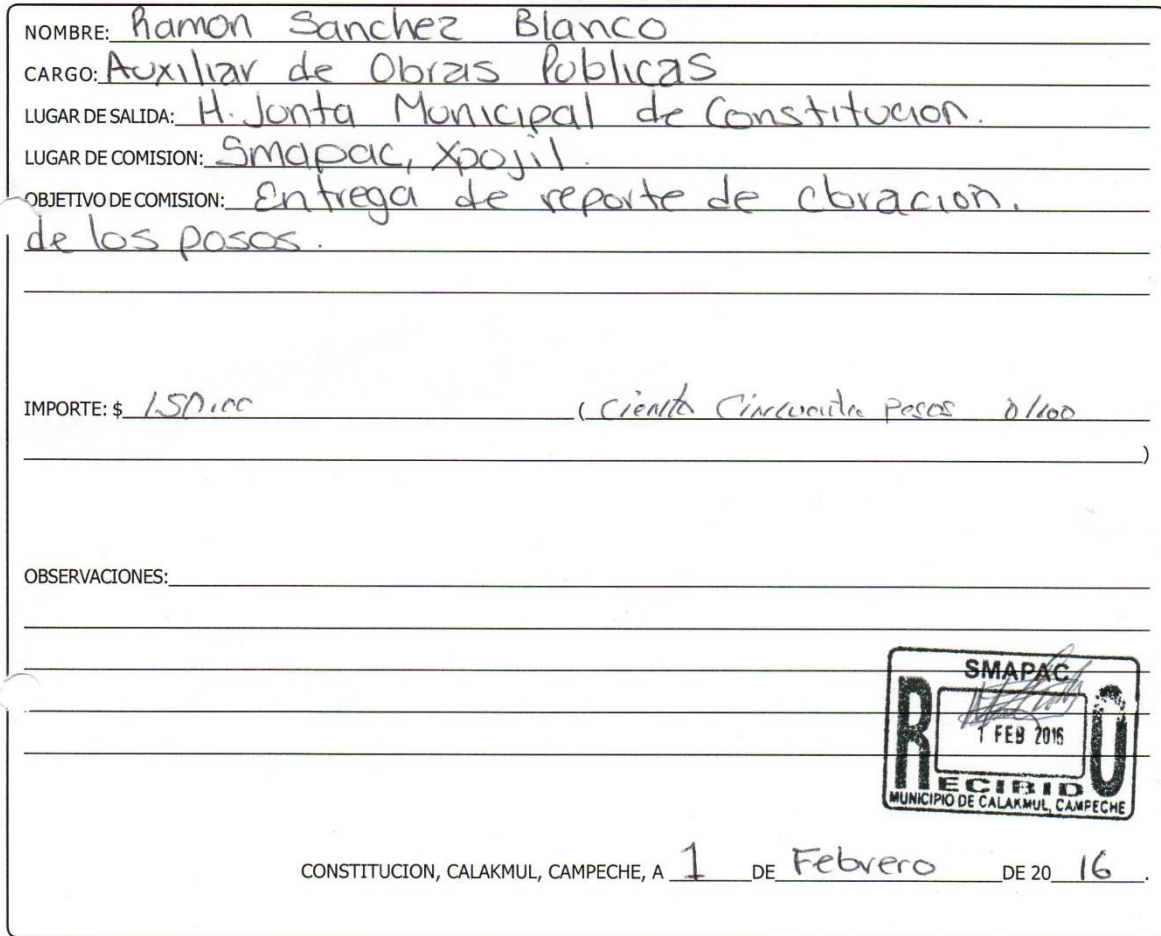 NOMBRE: Ramon Sanchez Blanco
CARGO: Auxiliar de Obras Publicas
LUGAR DE SALIDA: H. Junta Municipal de Constitucion.
LUGAR DE COMISION: Smapac, Xpojil.
OBJETIVO DE COMISION: Entrega de reporte de cloracion.
de los posos.
IMPORTE: $ 150.00 (Ciento Cincuenta Pesos 0/100
)
OBSERVACIONES:
SMAPAC
1 FEB 2016
RECIBIDO
MUNICIPIO DE CALAKMUL, CAMPECHE
CONSTITUCION, CALAKMUL, CAMPECHE, A 1 DE Febrero DE 20 16.